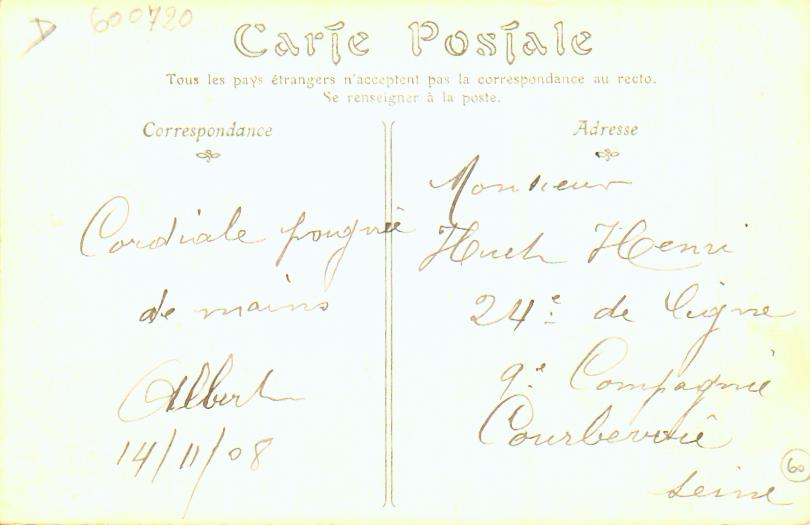 D 600720
Carte Postale
Tous les pays étrangers n'acceptent pas la correspondance au recto.
Se renseigner à la poste.
Correspondance
Cordiale pougnie
de mains
Albert
14/11/08
Adresse
Monsieur
Huch Henri
24e de ligne
9e Compagnie
Courbevoie
Seine
60